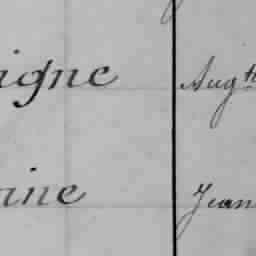 igne Augth
ine Jean